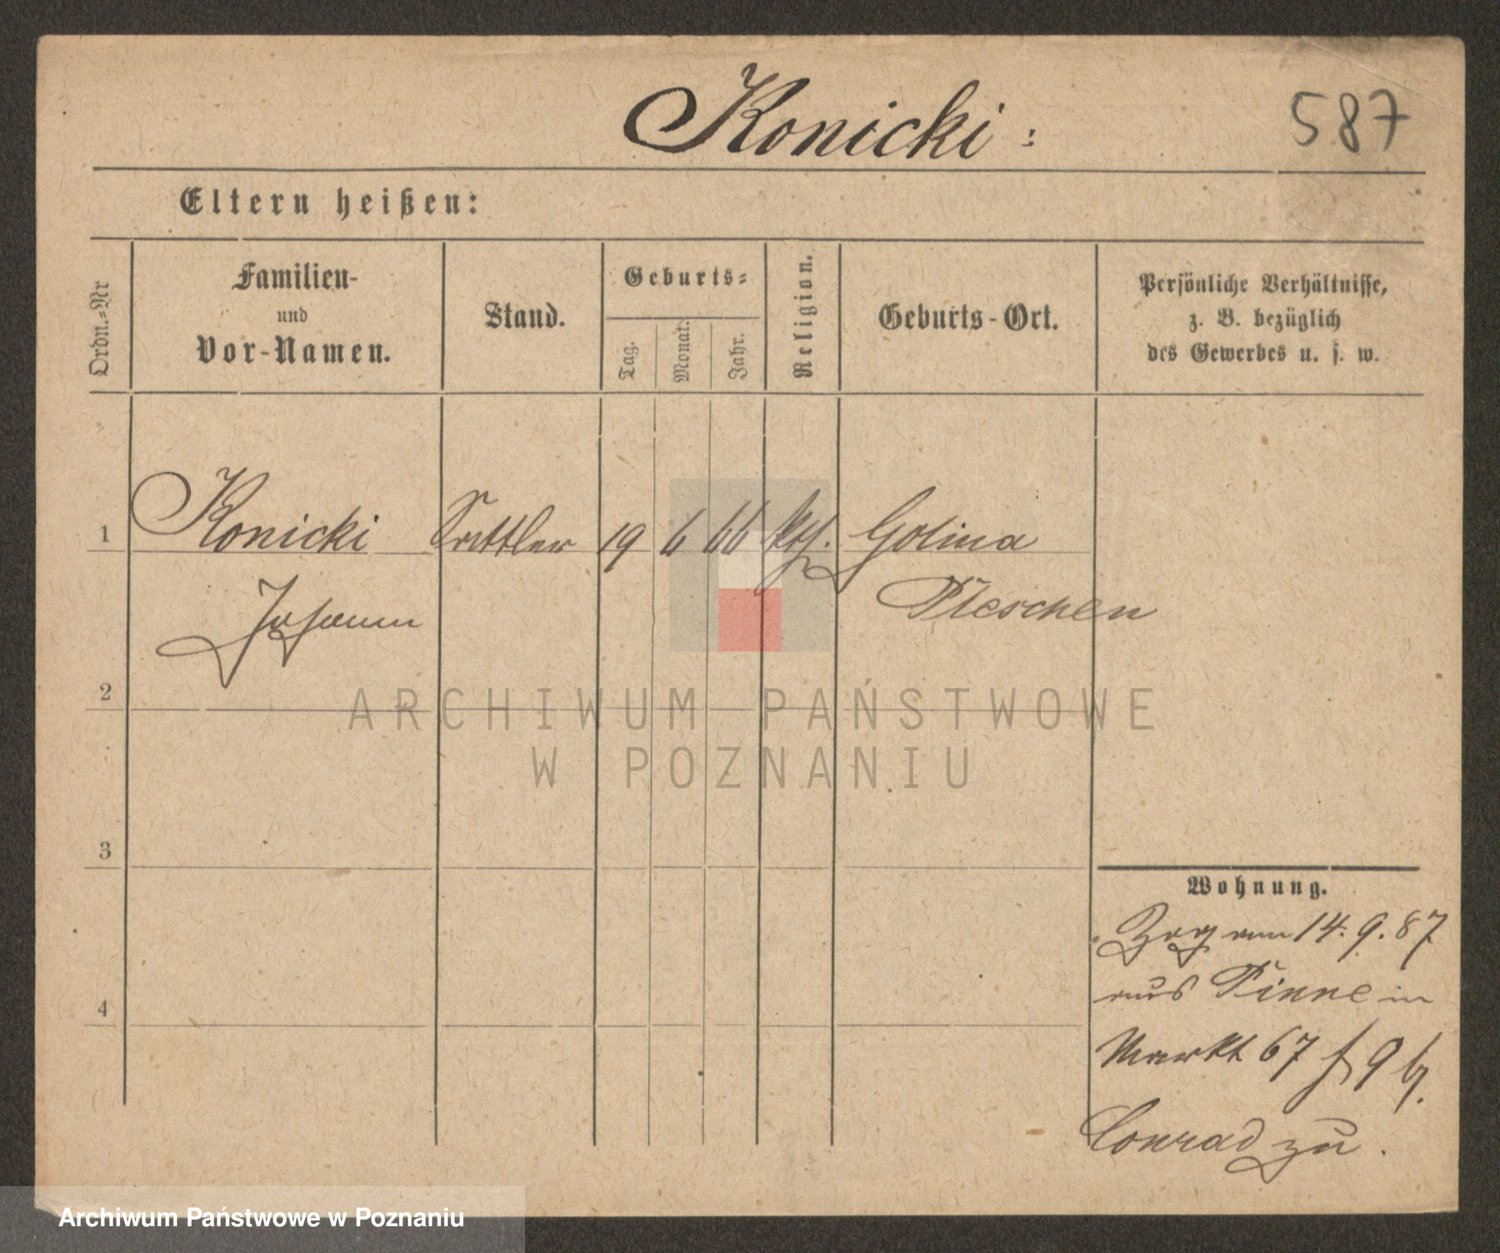 Konicki:
587
Eltern heißen:
Ordn.-Nr
Familien-
und
Vor-Namen.
Stand.
Geburts-
Tag.
Monat.
Jahr.
Religion.
Geburts-Ort.
Persönliche Verhältnisse,
z. B. bezüglich
des Gewerbes u. s. w.
1 Konicki Sattler 19 6 66 kth. Golina
Johann Pleschen
2
ARCHIWUM PAŃSTWOWE
W POZNANIU
3
Wohnung.
Zog am 14. 9. 87
aus Pinne in
4
Markt 67
Conrad zu.
Archiwum Państwowe w Poznaniu